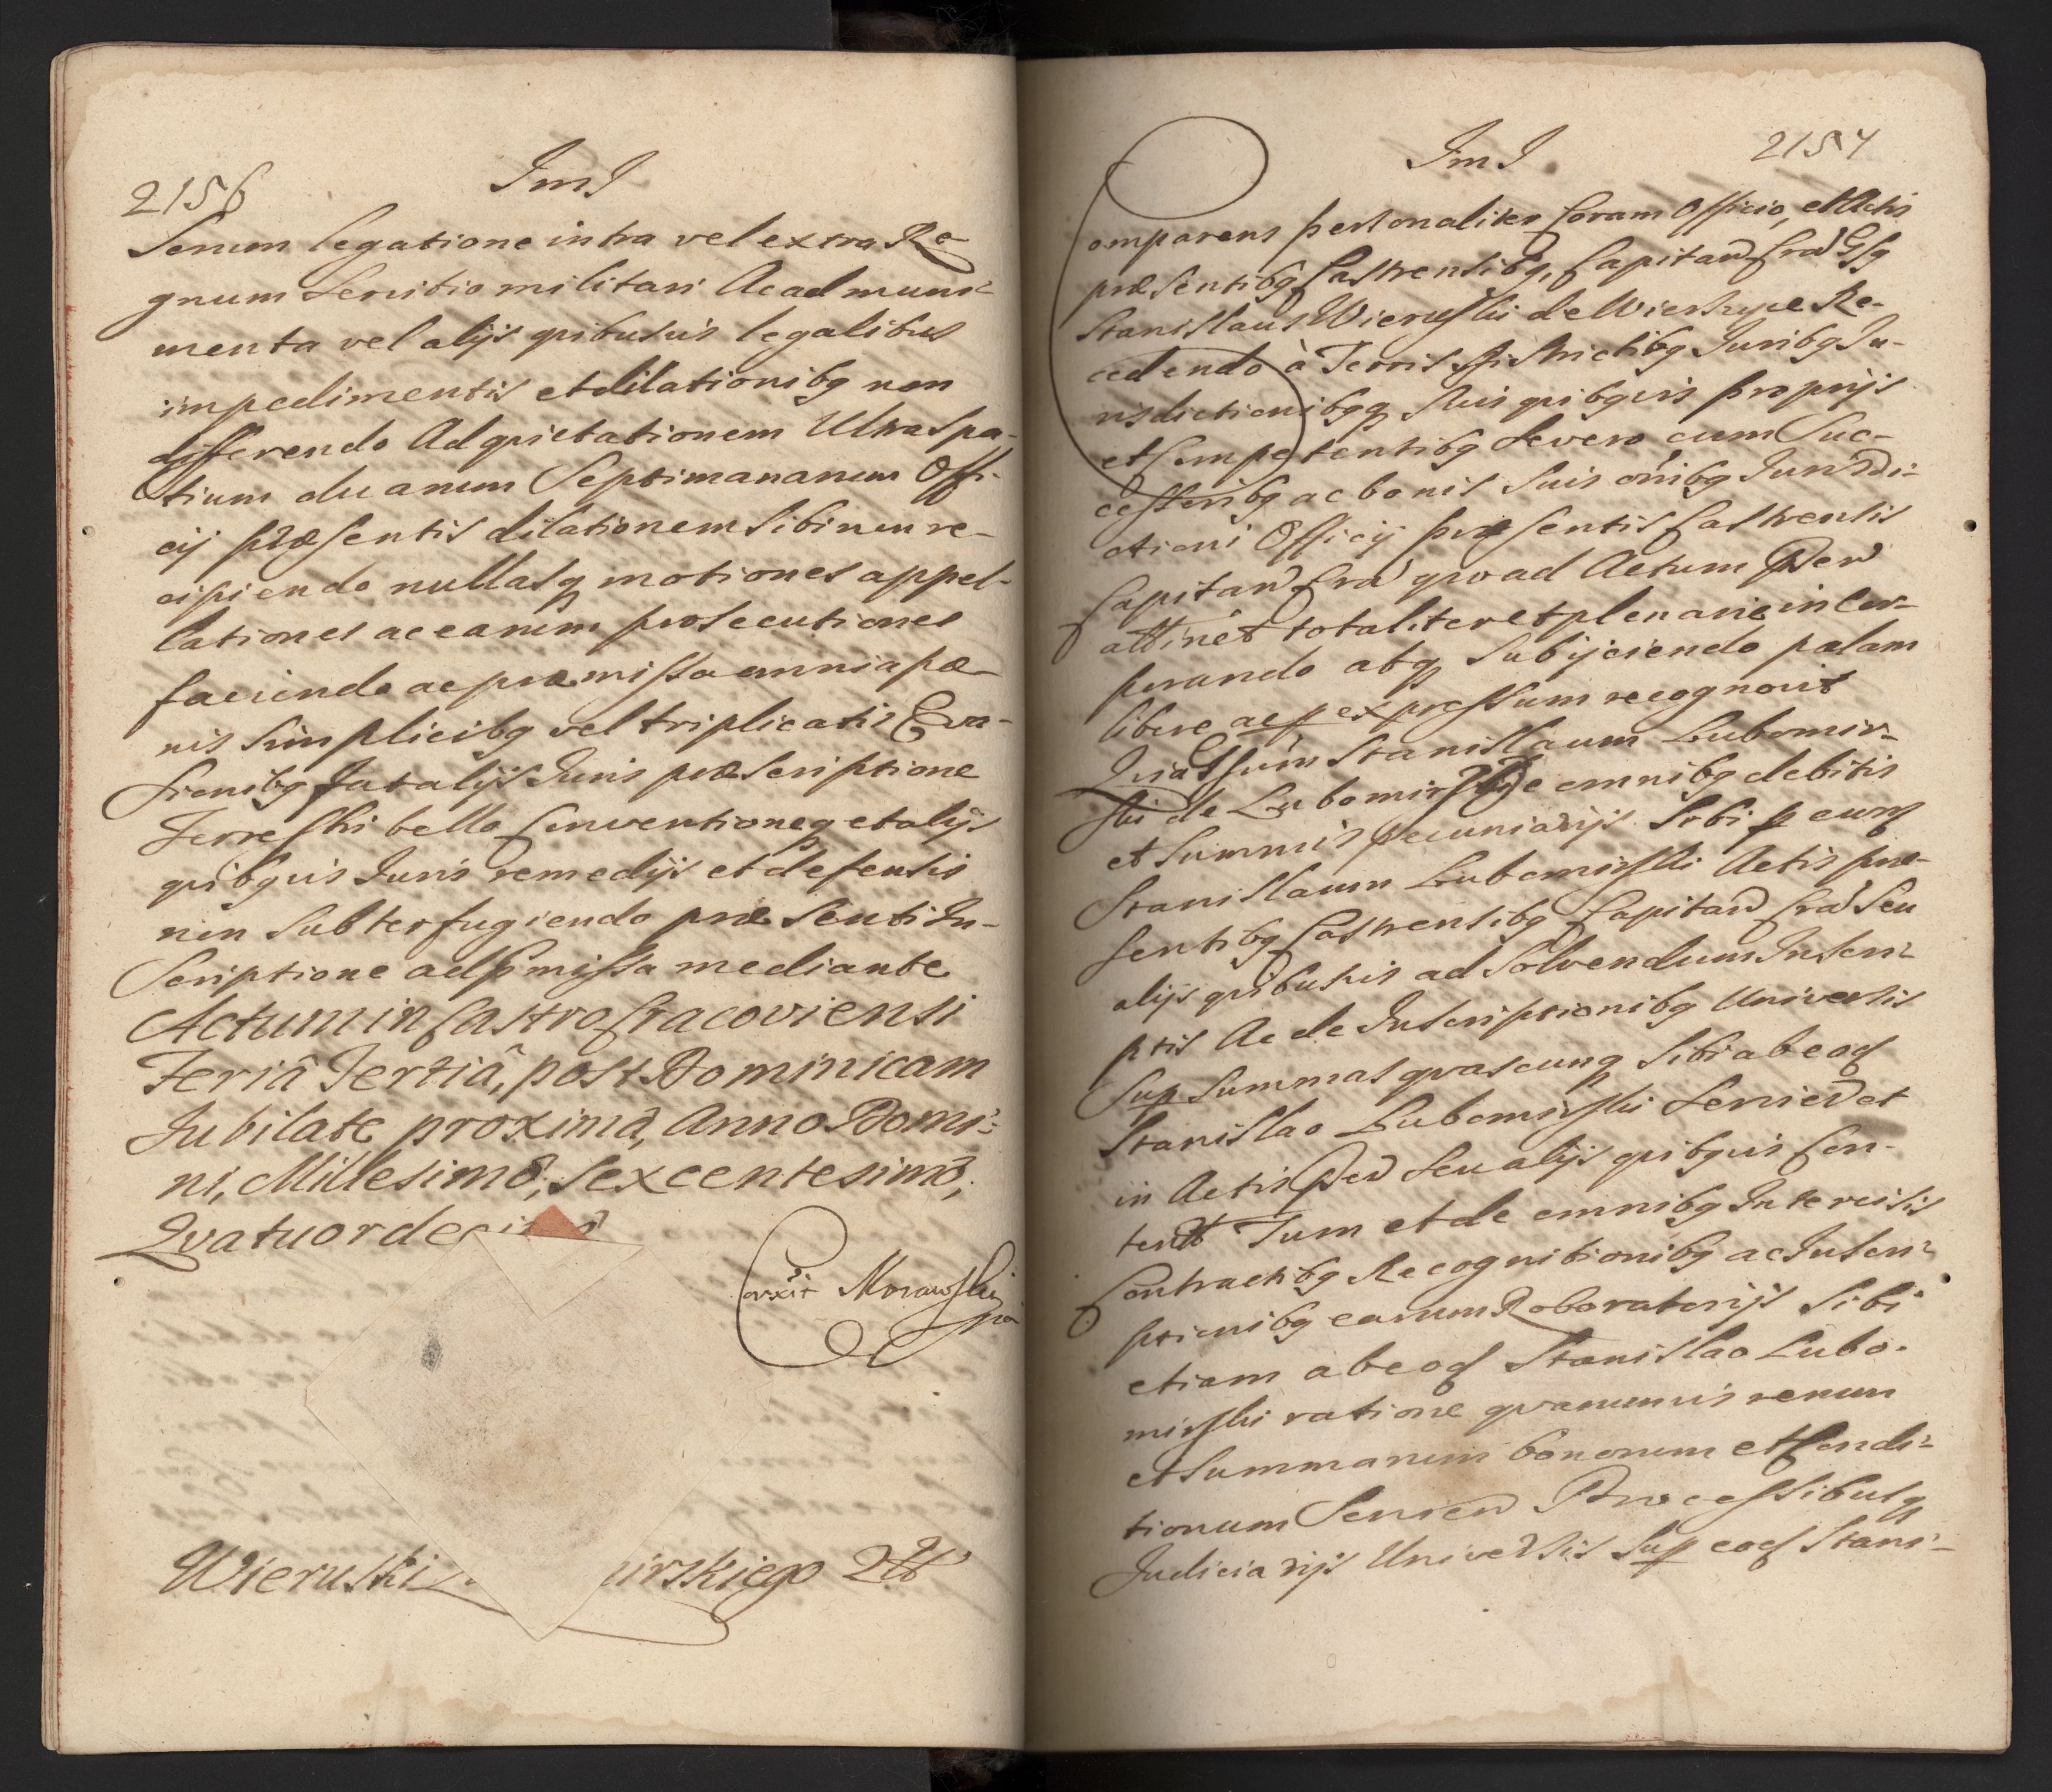 2156
ImI
Serum legatione intra vel extra Re-
gnum Servitio militari Ac ad muni-
menta vel alijs quibusuis legalibus
impedimentis et dilationibg non
differendo Ad quietationem Ultra Spa-
tium duarum Septimanarum Offi-
cij præsentis dilationem Sibi non re-
cipiendo nullasq motiones appel-
lationes ac earum prosecutiones
faciendo ac præmissa omnia pæ-
nis Simplicibg vel triplicatis Eva-
sionibg fatalijs Juris præscriptione
Terrestri bello Conventioneq et alijs
quibguis Juris remedijs et defensis
non Subterfugiendo præsenti In-
Scriptione ad præmissa mediante
Actum in Castro Cracoviensi
Feriâ Tertiâ, post Dominicam
Jubilate proximâ, Anno Domi-
ni, Millesimô, Sexcentesimô,
Qvatuordecimô
Corxit Morawski
mp
Wieruski irskiego Qtt
2157
ImI
Comparens personaliter Coram Officio, et Actis
præsentibg Castrensibg, Capitan Cra Gsg
Stanislaus Wieruski de Wierzuyce Re-
cedendo à Terris Districtibg Juribg Ju-
risdictionibgq Suis quibguis proprijs
et Competentibg Se vero cum Suc-
cessoribg ac bonis Suis oñibg Jurisdi-
ctioni Officij præsentis Castrensis
Capitan Cra quoad Actum Den
attinet totaliter et plenarie incor-
porando atq Subijciendo palam
libere ac p expressum recognovit
Quia Gsum Stanislaum Lubomir-
ski de Lubomirz De omnibg debitis
et Summis pecuniarijs Sibi p eund
Stanislaum Lubomirski Actis præ-
sentibg Castrensibg Capitan Cra Seu
alijs quibusuis ad Solvendum Inscri-
ptis Ac de Inscriptionibg Universis
Sup Summas quascunq Sibi ab eod
Stanislao Lubomirski Servien et
in Actis Den Seu alijs quibguis Con-
tent Tum et de omnibg Intercisis
Contractibg Recognitionibg ac Inscri-
ptionibg earum Roboratorijs Sibi
etiam ab eod Stanislao Lubo-
mirski ratione quarumuis rerum
et Summarum bonorum et Condi-
tionum Servien Processibusq
Judiciarijs Universis Sup eod Stani-